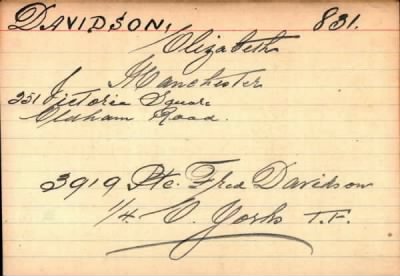 DAVIDSON, 831.
Elizabeth
Manchester
251 Victoria Square
Oldham Road.
3919 Pte. Fred Davidson
1/4 O. Yorks T.F.